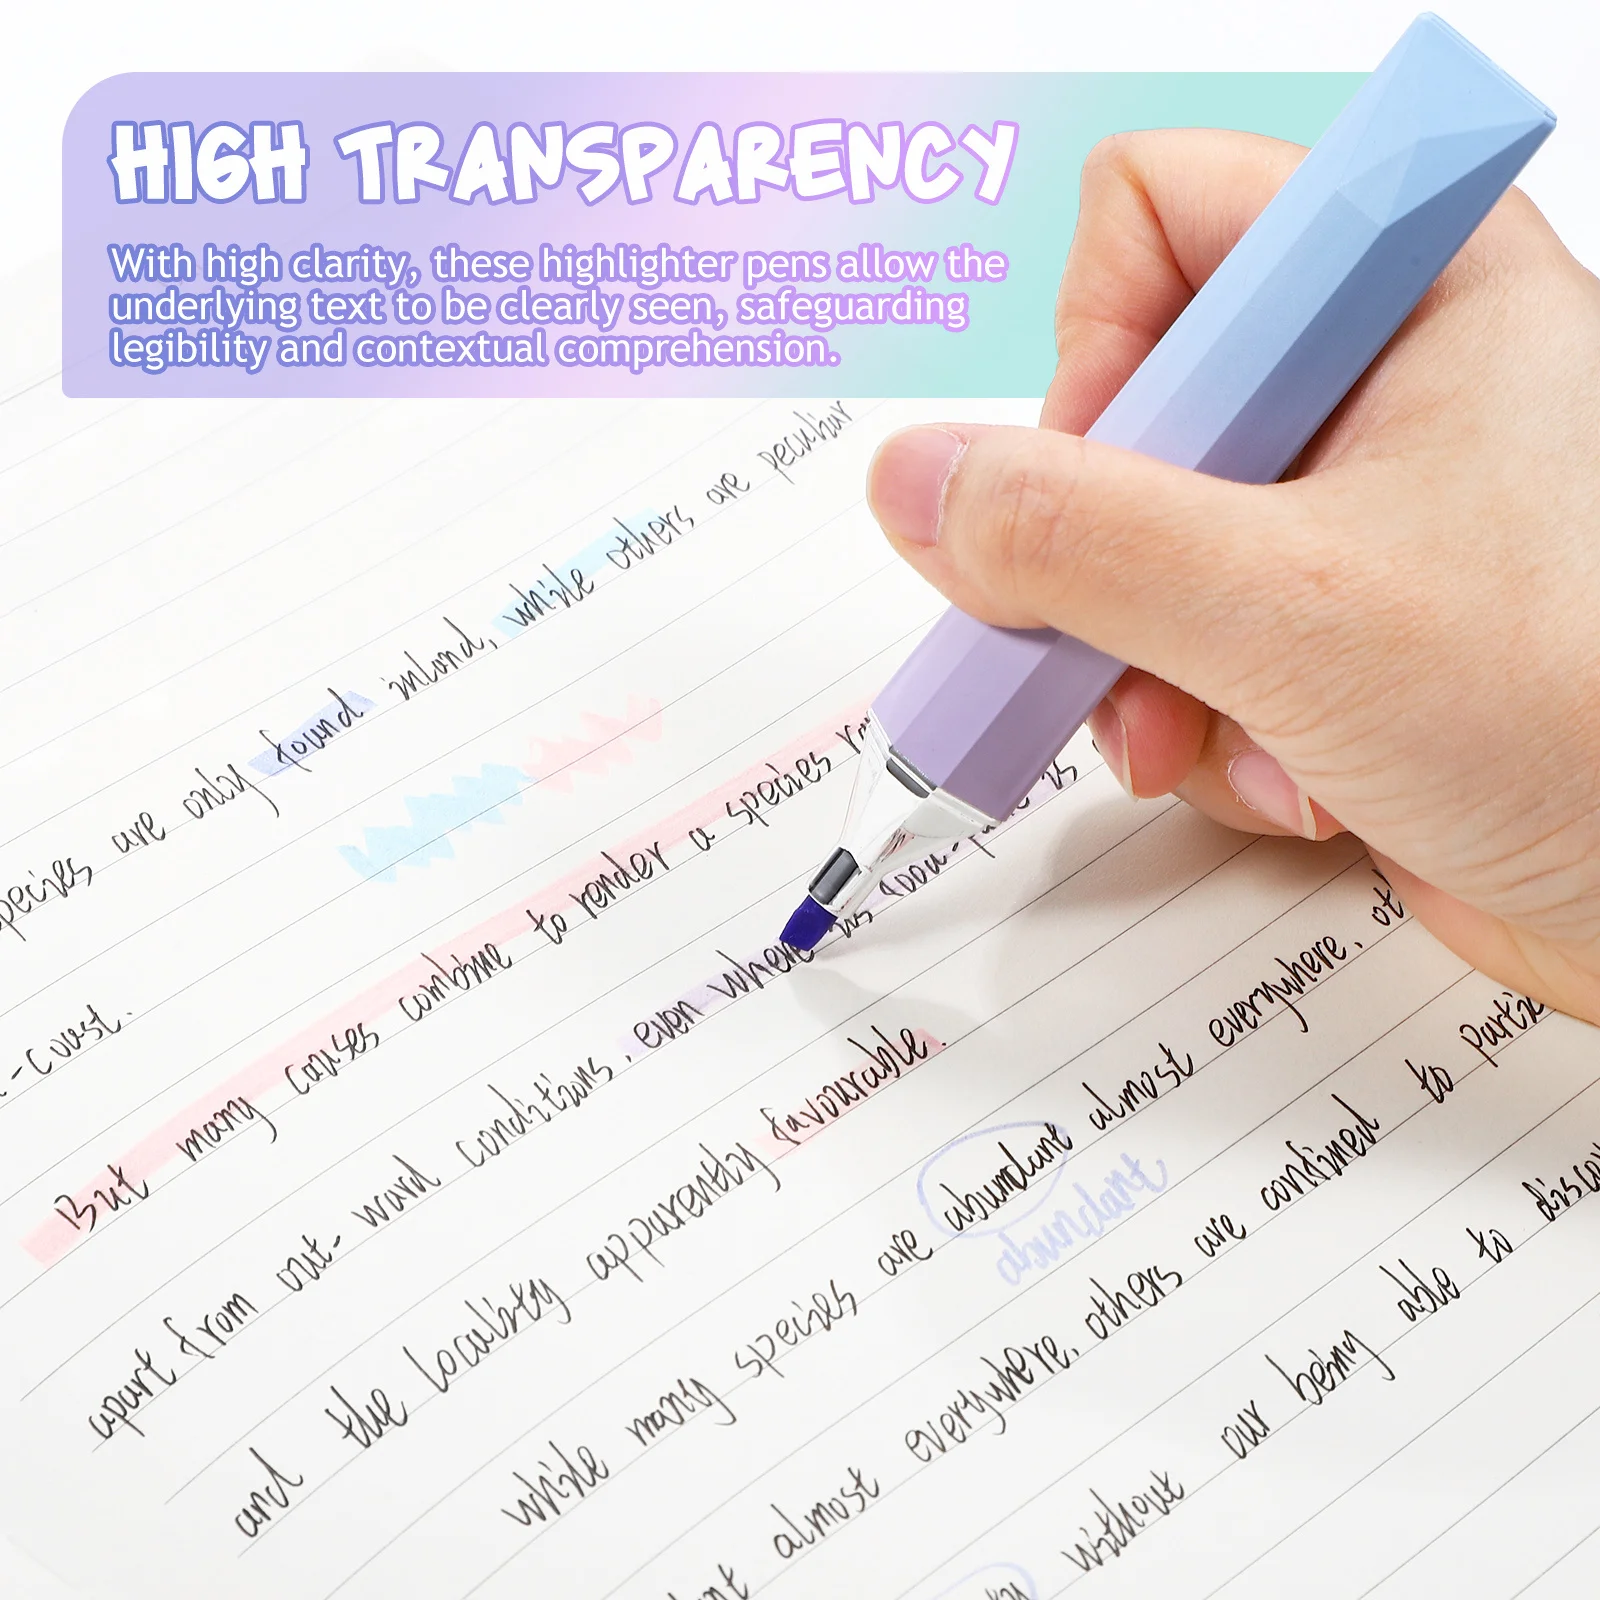 HIGH TRANSPARENCY
With high clarity, these highlighter pens allow the
underlying text to be clearly seen, safeguarding
legibility and contextual comprehension.
species are only found inland, while others are peculiar
-coast.
But many causes combine to render a species
apart from out-ward conditions, even where is
and the locality apparently favourable.
while many species are abundant almost everywhere,
abundant
almost everywhere, others are confined to
without our being able to